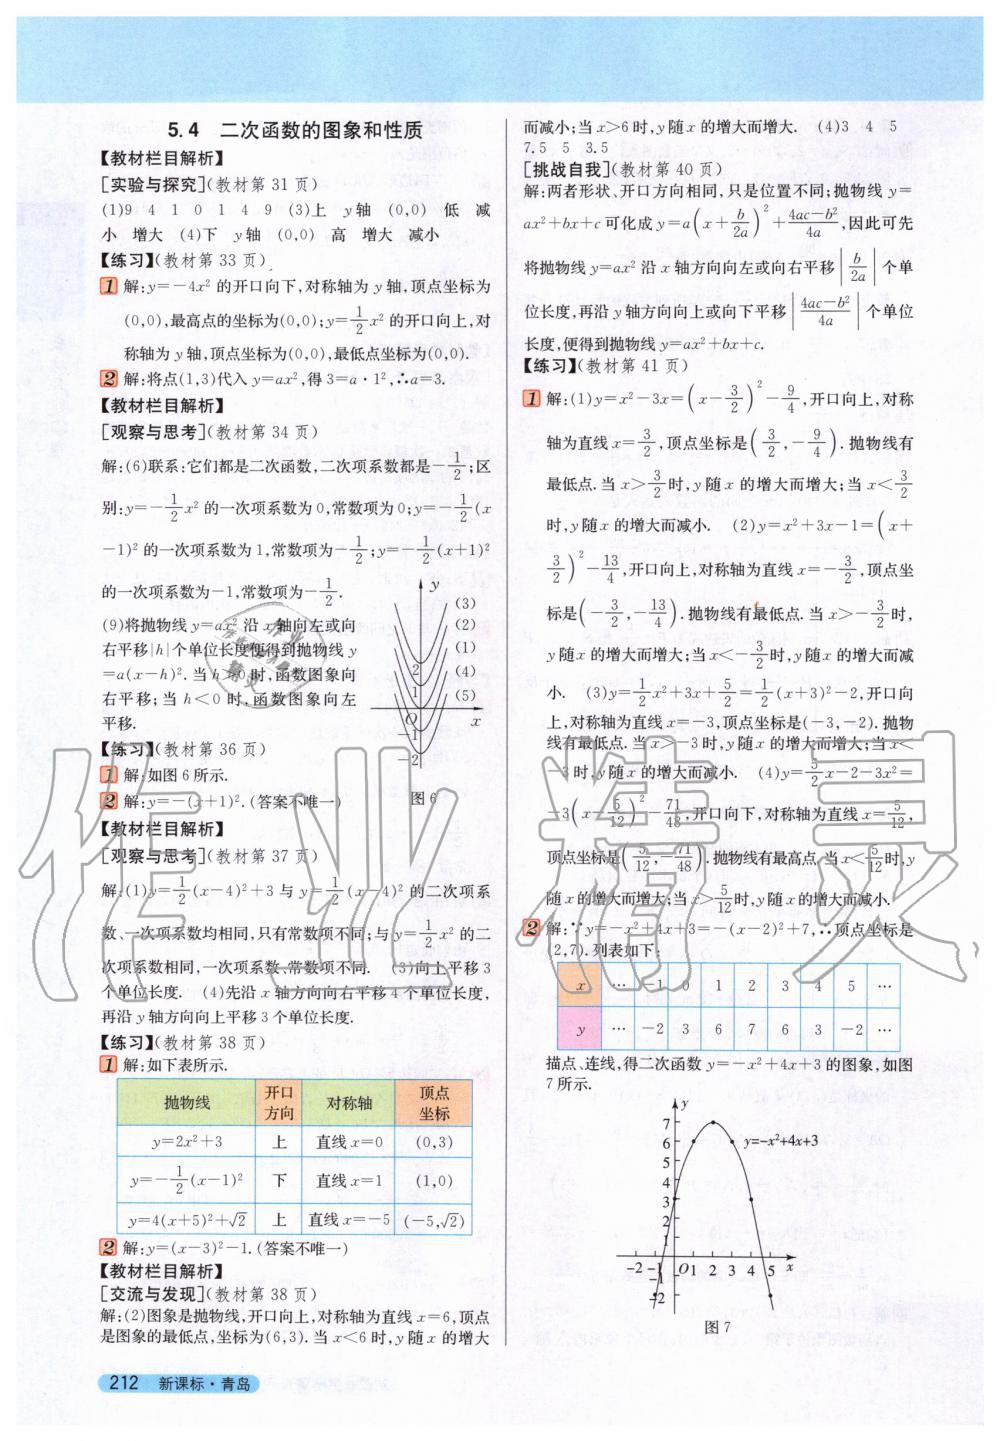 5.4 二次函数的图象和性质
【教材栏目解析】
[实验与探究](教材第 31 页)
(1)9 4 1 0 1 4 9 (3)上 y 轴 (0,0) 低 减
小 增大 (4)下 y 轴 (0,0) 高 增大 减小
【练习】(教材第 33 页)
1 解:y=-4x² 的开口向下,对称轴为 y 轴,顶点坐标为
(0,0),最高点的坐标为(0,0);y=1/2x² 的开口向上,对
称轴为 y 轴,顶点坐标为(0,0),最低点坐标为(0,0).
2 解:将点(1,3)代入 y=ax²,得 3=a·1²,∴a=3.
【教材栏目解析】
[观察与思考](教材第 34 页)
解:(6)联系:它们都是二次函数,二次项系数都是-1/2;区
别:y=-1/2x² 的一次项系数为 0,常数项为 0;y=-1/2(x
-1)² 的一次项系数为 1,常数项为-1/2;y=-1/2(x+1)²
的一次项系数为-1,常数项为-1/2.
(9)将抛物线 y=ax² 沿 x 轴向左或向
右平移|h|个单位长度便得到抛物线 y
=a(x-h)². 当 h>0 时,函数图象向
右平移;当 h<0 时,函数图象向左
平移.
y
(3)
(2)
(1)
(4)
(5)
2
1
O
x
-1
-2
图 6
【练习】(教材第 36 页)
1 解:如图 6 所示.
2 解:y=-(x+1)². (答案不唯一)
【教材栏目解析】
[观察与思考](教材第 37 页)
解:(1)y=1/2(x-4)²+3 与 y=1/2(x-4)² 的二次项系
数、一次项系数均相同,只有常数项不同;与 y=1/2x² 的二
次项系数相同,一次项系数、常数项不同. (3)向上平移 3
个单位长度. (4)先沿 x 轴方向向右平移 4 个单位长度,
再沿 y 轴方向向上平移 3 个单位长度.
【练习】(教材第 38 页)
1 解:如下表所示.
抛物线 开口方向 对称轴 顶点坐标
y=2x²+3 上 直线 x=0 (0,3)
y=-1/2(x-1)² 下 直线 x=1 (1,0)
y=4(x+5)²+√2 上 直线 x=-5 (-5,√2)
2 解:y=(x-3)²-1. (答案不唯一)
【教材栏目解析】
[交流与发现](教材第 38 页)
解:(2)图象是抛物线,开口向上,对称轴为直线 x=6,顶点
是图象的最低点,坐标为(6,3). 当 x<6 时,y 随 x 的增大
212 新课标·青岛
而减小;当 x>6 时,y 随 x 的增大而增大. (4)3 4 5
7.5 5 3.5
[挑战自我](教材第 40 页)
解:两者形状、开口方向相同,只是位置不同;抛物线 y=
ax²+bx+c 可化成 y=a(x+b/2a)²+(4ac-b²)/4a,因此可先
将抛物线 y=ax² 沿 x 轴方向向左或向右平移|b/2a|个单
位长度,再沿 y 轴方向向上或向下平移|(4ac-b²)/4a|个单位
长度,便得到抛物线 y=ax²+bx+c.
【练习】(教材第 41 页)
1 解:(1)y=x²-3x=(x-3/2)²-9/4,开口向上,对称
轴为直线 x=3/2,顶点坐标是(3/2,-9/4). 抛物线有
最低点. 当 x>3/2时,y 随 x 的增大而增大;当 x<3/2
时,y 随 x 的增大而减小. (2)y=x²+3x-1=(x+
3/2)²-13/4,开口向上,对称轴为直线 x=-3/2,顶点坐
标是(-3/2,-13/4). 抛物线有最低点. 当 x>-3/2时,
y 随 x 的增大而增大;当 x<-3/2时,y 随 x 的增大而减
小. (3)y=1/2x²+3x+5/2=1/2(x+3)²-2,开口向
上,对称轴为直线 x=-3,顶点坐标是(-3,-2). 抛物
线有最低点. 当 x>-3 时,y 随 x 的增大而增大;当 x<
-3 时,y 随 x 的增大而减小. (4)y=5/2x-2-3x²=
-3(x-5/12)²-71/48,开口向下,对称轴为直线 x=5/12,
顶点坐标是(5/12,-71/48). 抛物线有最高点. 当 x<5/12时,y
随 x 的增大而增大;当 x>5/12时,y 随 x 的增大而减小.
2 解:∵y=-x²+4x+3=-(x-2)²+7,∴顶点坐标是
(2,7). 列表如下:
x … -1 0 1 2 3 4 5 …
y … -2 3 6 7 6 3 -2 …
描点、连线,得二次函数 y=-x²+4x+3 的图象,如图
7 所示.
y
7
6
5
4
3
2
1
y=-x²+4x+3
-2 -1 O 1 2 3 4 5 x
-1
-2
图 7
作业精灵